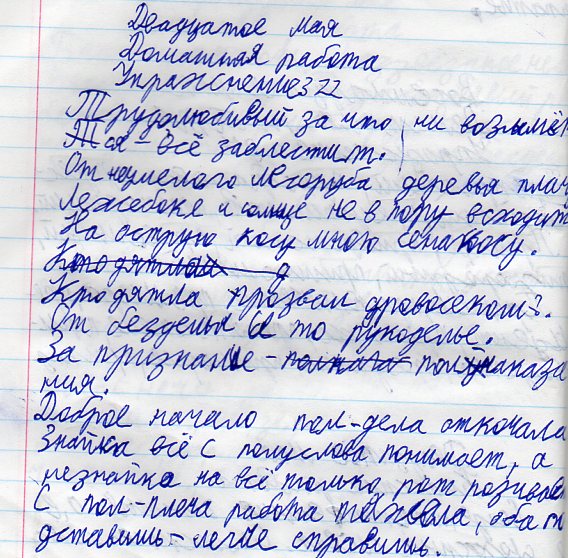 Двадцатое мая
Домашняя работа
Упражнение 322
Трудолюбивый за что ни возьмёт
тся - всё заблестит.
От неумелого лесоруба деревья плач
Лежебоке и солнце не в пору всходит
На острую косу много сенокосу.
Кто дятлай д
Кто дятла прозвал дровосеком?.
От безделья и то рукоделье.
За признанье - пол наказа
ния.
Доброе начало пол-дела откачало
Знайка всё с полуслова понимает, а
незнайка на всё только рот розивает
С пол-плеча работа тяжела, оба п
дставишь - легче справишь.